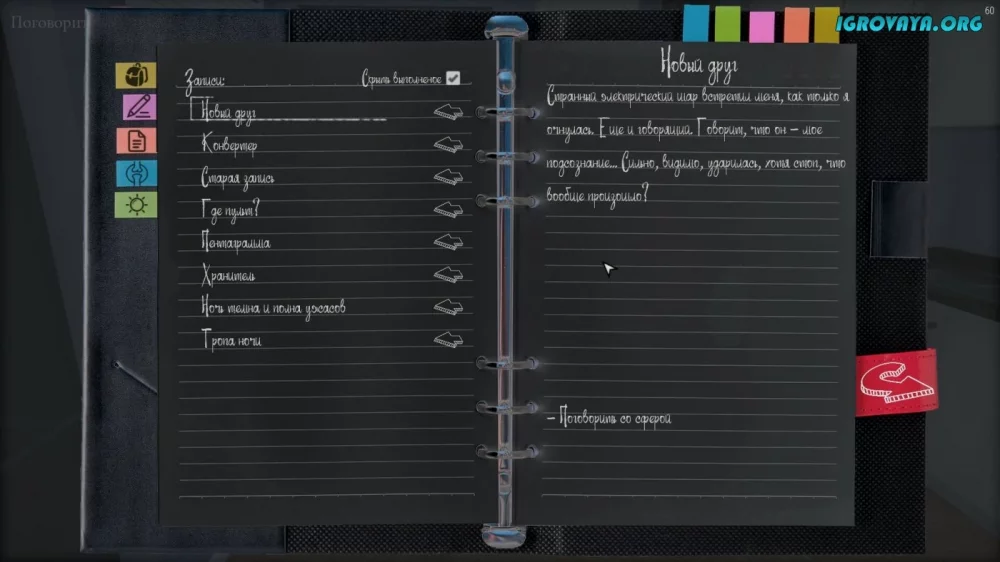 60
IGROVAYA.ORG
Новый друг
Записи:
Скрыть выполненое
Новый друг
Конвертер
Старая запись
Где пульт?
Пентаграмма
Хранитель
Ночь темна и полна ужасов
Тропа ночи
Странный электрический шар встретил меня, как только я
очнулась. Еще и говорящий. Говорит, что он – мое
подсознание... Сильно, видимо, ударилась, хотя стоп, что
вообще произошло?
– Поговорить со сферой